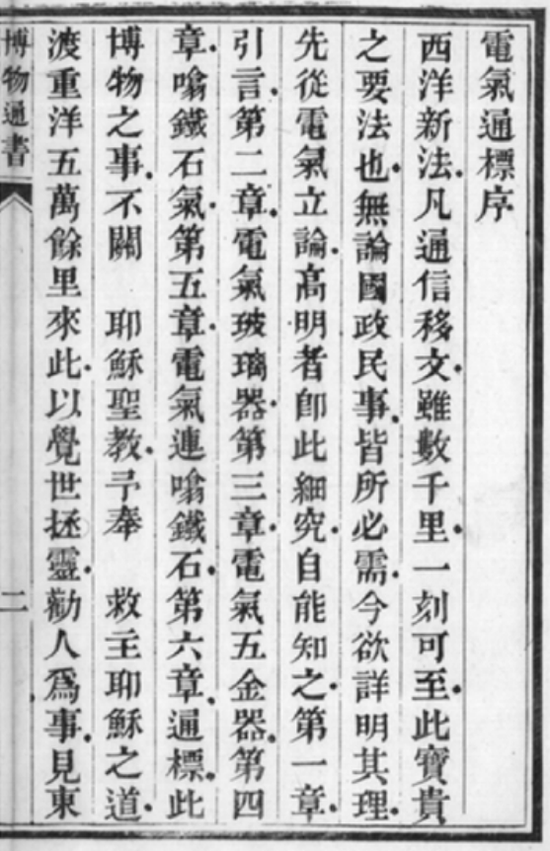 電氣通標序
西洋新法.凡通信移文.雖數千里.一刻可至.此寶貴
之要法也.無論國政民事.皆所必需.今欲詳明其理.
先從電氣立論.高明者卽此細究.自能知之.第一章.
引言.第二章.電氣玻璃器.第三章.電氣五金器.第四
章.噏鐵石氣.第五章.電氣連噏鐵石.第六章.通標.此
博物之事.不關　耶穌聖教.予奉　救主耶穌之道.
渡重洋五萬餘里來此.以覺世拯靈.勸人爲事.見東
博物通書
二